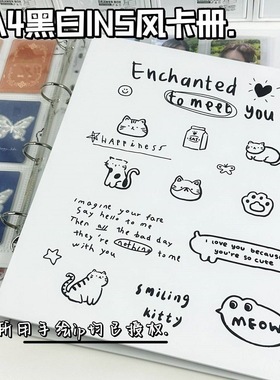 A4黑白INS风卡册.
Enchanted
to meet you
HAPPINESS
imagine your face
Say hello to me
Then all the bad day
they're nothing to me
with you
i love you because
you're so cute
smiling
kitty
MEOW
所用手绘ip均已授权.